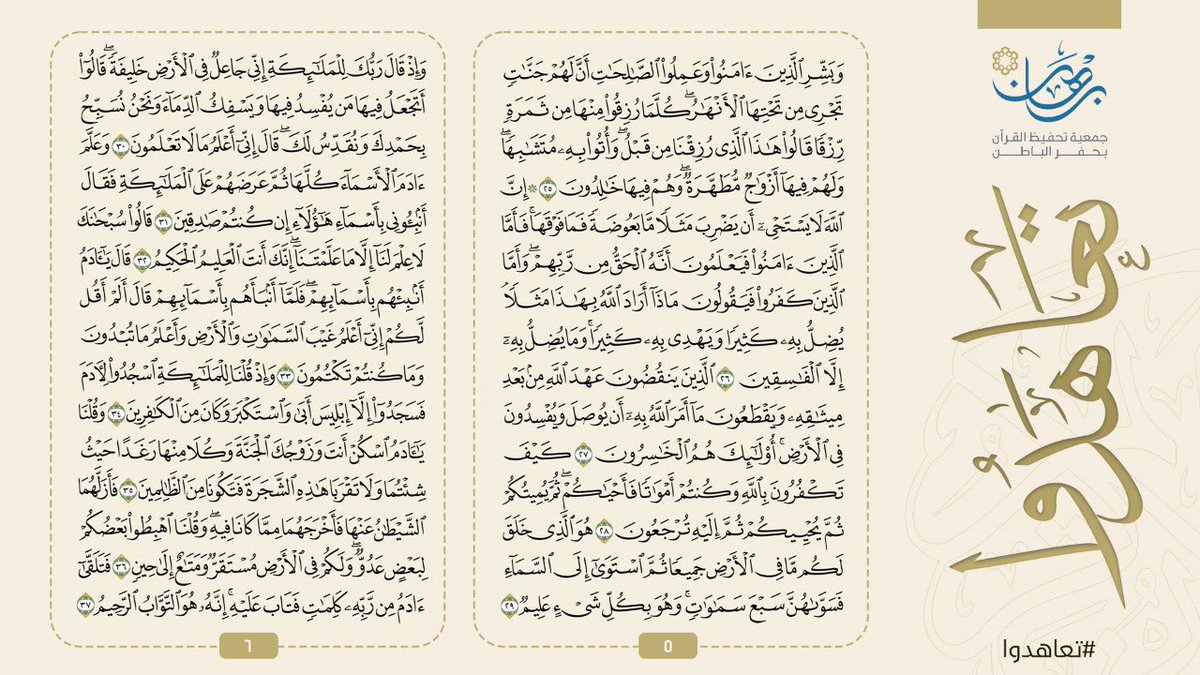 برهان
جمعية تحفيظ القرآن
بحفر الباطن
تعاهدوا
#تعاهدوا
وَبَشِّرِ ٱلَّذِينَ ءَامَنُوا۟ وَعَمِلُوا۟ ٱلصَّٰلِحَٰتِ أَنَّ لَهُمْ جَنَّٰتٍ
تَجْرِى مِن تَحْتِهَا ٱلْأَنْهَٰرُ ۖ كُلَّمَا رُزِقُوا۟ مِنْهَا مِن ثَمَرَةٍ
رِّزْقًا قَالُوا۟ هَٰذَا ٱلَّذِى رُزِقْنَا مِن قَبْلُ ۖ وَأُتُوا۟ بِهِۦ مُتَشَٰبِهًا ۖ
وَلَهُمْ فِيهَآ أَزْوَٰجٌ مُّطَهَّرَةٌ ۖ وَهُمْ فِيهَا خَٰلِدُونَ ٢٥ ۞ إِنَّ
ٱللَّهَ لَا يَسْتَحْىِۦٓ أَن يَضْرِبَ مَثَلًا مَّا بَعُوضَةً فَمَا فَوْقَهَا ۚ فَأَمَّا
ٱلَّذِينَ ءَامَنُوا۟ فَيَعْلَمُونَ أَنَّهُ ٱلْحَقُّ مِن رَّبِّهِمْ ۖ وَأَمَّا
ٱلَّذِينَ كَفَرُوا۟ فَيَقُولُونَ مَاذَآ أَرَادَ ٱللَّهُ بِهَٰذَا مَثَلًا ۘ
يُضِلُّ بِهِۦ كَثِيرًا وَيَهْدِى بِهِۦ كَثِيرًا ۚ وَمَا يُضِلُّ بِهِۦٓ
إِلَّا ٱلْفَٰسِقِينَ ٢٦ ٱلَّذِينَ يَنقُضُونَ عَهْدَ ٱللَّهِ مِنۢ بَعْدِ
مِيثَٰقِهِۦ وَيَقْطَعُونَ مَآ أَمَرَ ٱللَّهُ بِهِۦٓ أَن يُوصَلَ وَيُفْسِدُونَ
فِى ٱلْأَرْضِ ۚ أُو۟لَٰٓئِكَ هُمُ ٱلْخَٰسِرُونَ ٢٧ كَيْفَ
تَكْفُرُونَ بِٱللَّهِ وَكُنتُمْ أَمْوَٰتًا فَأَحْيَٰكُمْ ۖ ثُمَّ يُمِيتُكُمْ
ثُمَّ يُحْيِيكُمْ ثُمَّ إِلَيْهِ تُرْجَعُونَ ٢٨ هُوَ ٱلَّذِى خَلَقَ
لَكُم مَّا فِى ٱلْأَرْضِ جَمِيعًا ثُمَّ ٱسْتَوَىٰٓ إِلَى ٱلسَّمَآءِ
فَسَوَّىٰهُنَّ سَبْعَ سَمَٰوَٰتٍ ۚ وَهُوَ بِكُلِّ شَىْءٍ عَلِيمٌ ٢٩
٥
وَإِذْ قَالَ رَبُّكَ لِلْمَلَٰٓئِكَةِ إِنِّى جَاعِلٌ فِى ٱلْأَرْضِ خَلِيفَةً ۖ قَالُوٓا۟
أَتَجْعَلُ فِيهَا مَن يُفْسِدُ فِيهَا وَيَسْفِكُ ٱلدِّمَآءَ وَنَحْنُ نُسَبِّحُ
بِحَمْدِكَ وَنُقَدِّسُ لَكَ ۖ قَالَ إِنِّىٓ أَعْلَمُ مَا لَا تَعْلَمُونَ ٣٠ وَعَلَّمَ
ءَادَمَ ٱلْأَسْمَآءَ كُلَّهَا ثُمَّ عَرَضَهُمْ عَلَى ٱلْمَلَٰٓئِكَةِ فَقَالَ
أَنۢبِـُٔونِى بِأَسْمَآءِ هَٰٓؤُلَآءِ إِن كُنتُمْ صَٰدِقِينَ ٣١ قَالُوا۟ سُبْحَٰنَكَ
لَا عِلْمَ لَنَآ إِلَّا مَا عَلَّمْتَنَآ ۖ إِنَّكَ أَنتَ ٱلْعَلِيمُ ٱلْحَكِيمُ ٣٢ قَالَ يَٰٓـَٔادَمُ
أَنۢبِئْهُم بِأَسْمَآئِهِمْ ۖ فَلَمَّآ أَنۢبَأَهُم بِأَسْمَآئِهِمْ قَالَ أَلَمْ أَقُل
لَّكُمْ إِنِّىٓ أَعْلَمُ غَيْبَ ٱلسَّمَٰوَٰتِ وَٱلْأَرْضِ وَأَعْلَمُ مَا تُبْدُونَ
وَمَا كُنتُمْ تَكْتُمُونَ ٣٣ وَإِذْ قُلْنَا لِلْمَلَٰٓئِكَةِ ٱسْجُدُوا۟ لِـَٔادَمَ
فَسَجَدُوٓا۟ إِلَّآ إِبْلِيسَ أَبَىٰ وَٱسْتَكْبَرَ وَكَانَ مِنَ ٱلْكَٰفِرِينَ ٣٤ وَقُلْنَا
يَٰٓـَٔادَمُ ٱسْكُنْ أَنتَ وَزَوْجُكَ ٱلْجَنَّةَ وَكُلَا مِنْهَا رَغَدًا حَيْثُ
شِئْتُمَا وَلَا تَقْرَبَا هَٰذِهِ ٱلشَّجَرَةَ فَتَكُونَا مِنَ ٱلظَّٰلِمِينَ ٣٥ فَأَزَلَّهُمَا
ٱلشَّيْطَٰنُ عَنْهَا فَأَخْرَجَهُمَا مِمَّا كَانَا فِيهِ ۖ وَقُلْنَا ٱهْبِطُوا۟ بَعْضُكُمْ
لِبَعْضٍ عَدُوٌّ ۖ وَلَكُمْ فِى ٱلْأَرْضِ مُسْتَقَرٌّ وَمَتَٰعٌ إِلَىٰ حِينٍ ٣٦ فَتَلَقَّىٰٓ
ءَادَمُ مِن رَّبِّهِۦ كَلِمَٰتٍ فَتَابَ عَلَيْهِ ۚ إِنَّهُۥ هُوَ ٱلتَّوَّابُ ٱلرَّحِيمُ ٣٧
٦